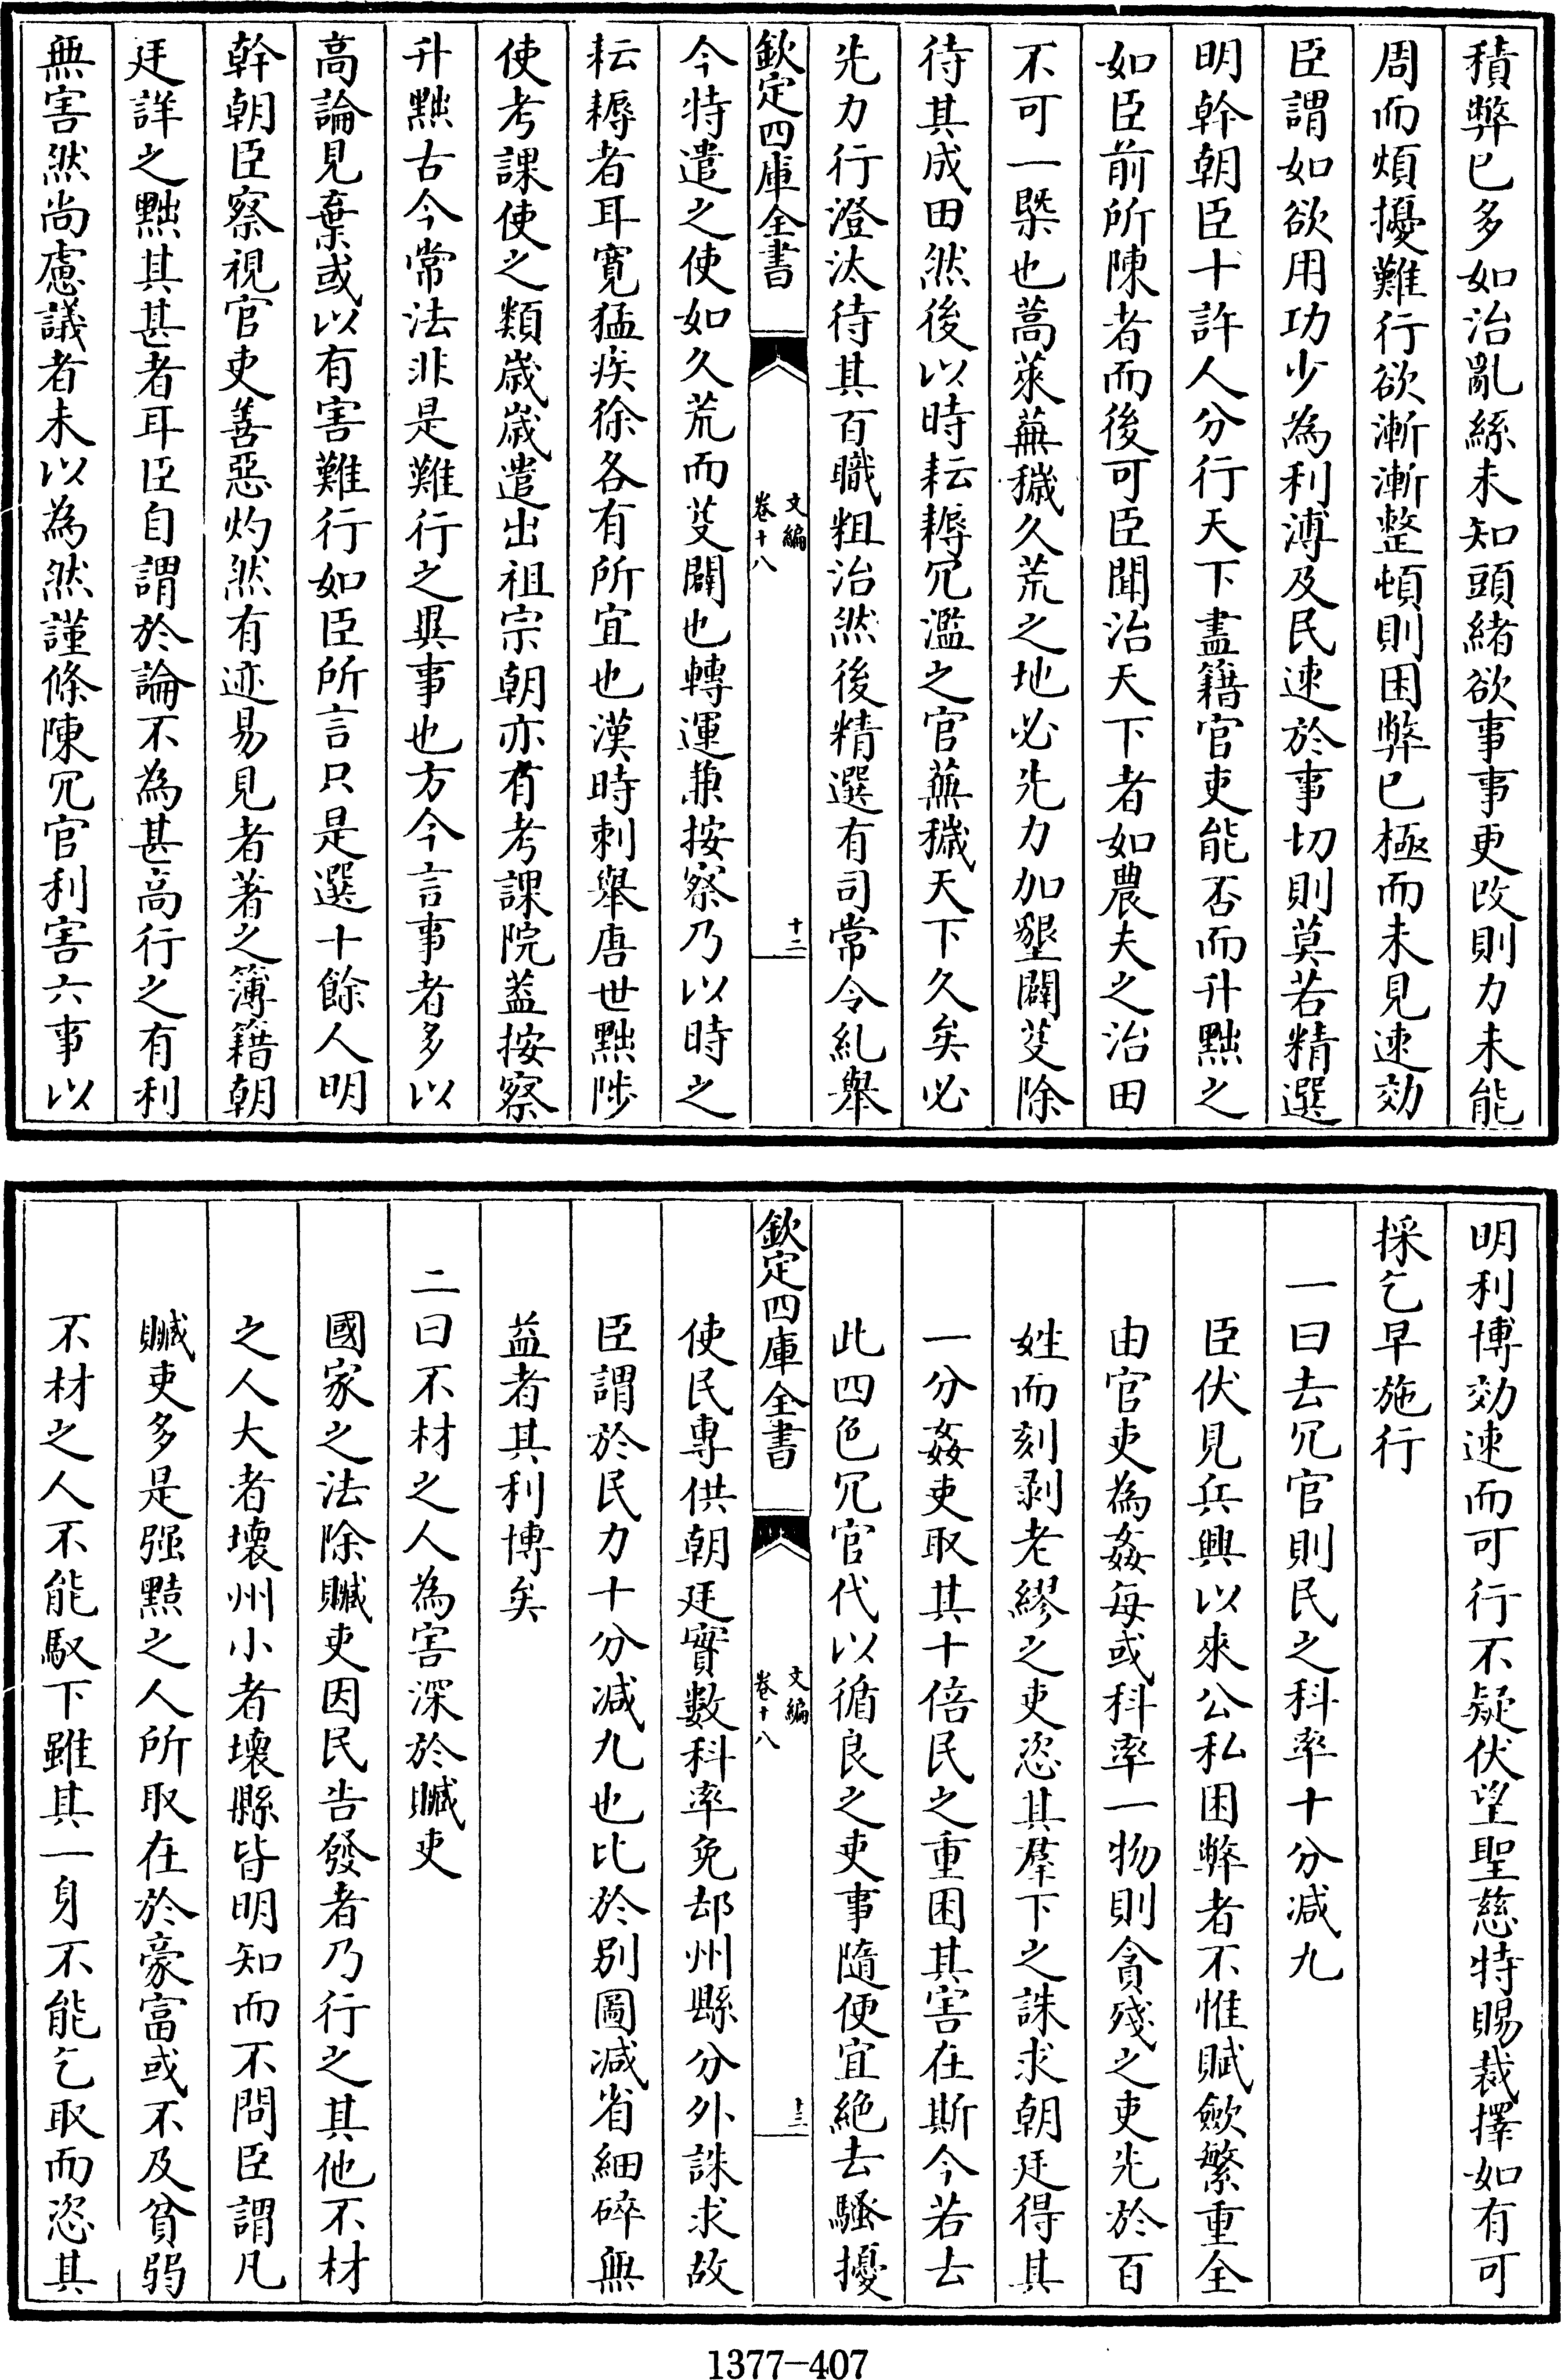 積弊已多如治亂絲未知頭緒欲事事更改則力未能
周而煩擾難行欲漸漸整頓則困弊已極而未見速効
臣謂如欲用功少為利溥及民速於事切則莫若精選
明幹朝臣十許人分行天下盡籍官吏能否而升黜之
如臣前所陳者而後可臣聞治天下者如農夫之治田
不可一槩也蒿萊蕪穢久荒之地必先力加墾闢芟除
待其成田然後以時耘耨冗濫之官蕪穢天下久矣必
先力行澄汰待其百職粗治然後精選有司常令糺舉
欽定四庫全書
文編
卷十八
十二
今特遣之使如久荒而芟闢也轉運兼按察乃以時之
耘耨者耳寛猛疾徐各有所宜也漢時刺舉唐世黜陟
使考課使之類歳歳遣出祖宗朝亦有考課院葢按察
升黜古今常法非是難行之異事也方今言事者多以
高論見棄或以有害難行如臣所言只是選十餘人明
幹朝臣察視官吏善惡灼然有迹易見者著之簿籍朝
廷詳之黜其甚者耳臣自謂於論不為甚高行之有利
無害然尚慮議者未以為然謹條陳冗官利害六事以
明利博効速而可行不疑伏望聖慈特賜裁擇如有可
採乞早施行
一曰去冗官則民之科率十分減九
臣伏見兵興以來公私困弊者不惟賦歛繁重全
由官吏為姦每或科率一物則貪殘之吏先於百
姓而刻剥老繆之吏恣其羣下之誅求朝廷得其
一分姦吏取其十倍民之重困其害在斯今若去
此四色冗官代以循良之吏事隨便宜絶去騷擾
欽定四庫全書
文編
卷十八
十三
使民專供朝廷實數科率免却州縣分外誅求故
臣謂於民力十分减九也比於别圖减省細碎無
益者其利博矣
二曰不材之人為害深於贓吏
國家之法除贓吏因民告發者乃行之其他不材
之人大者壞州小者壞縣皆明知而不問臣謂凡
贓吏多是强黠之人所取在於豪富或不及貧弱
不材之人不能馭下雖其一身不能乞取而恣其
1377-407